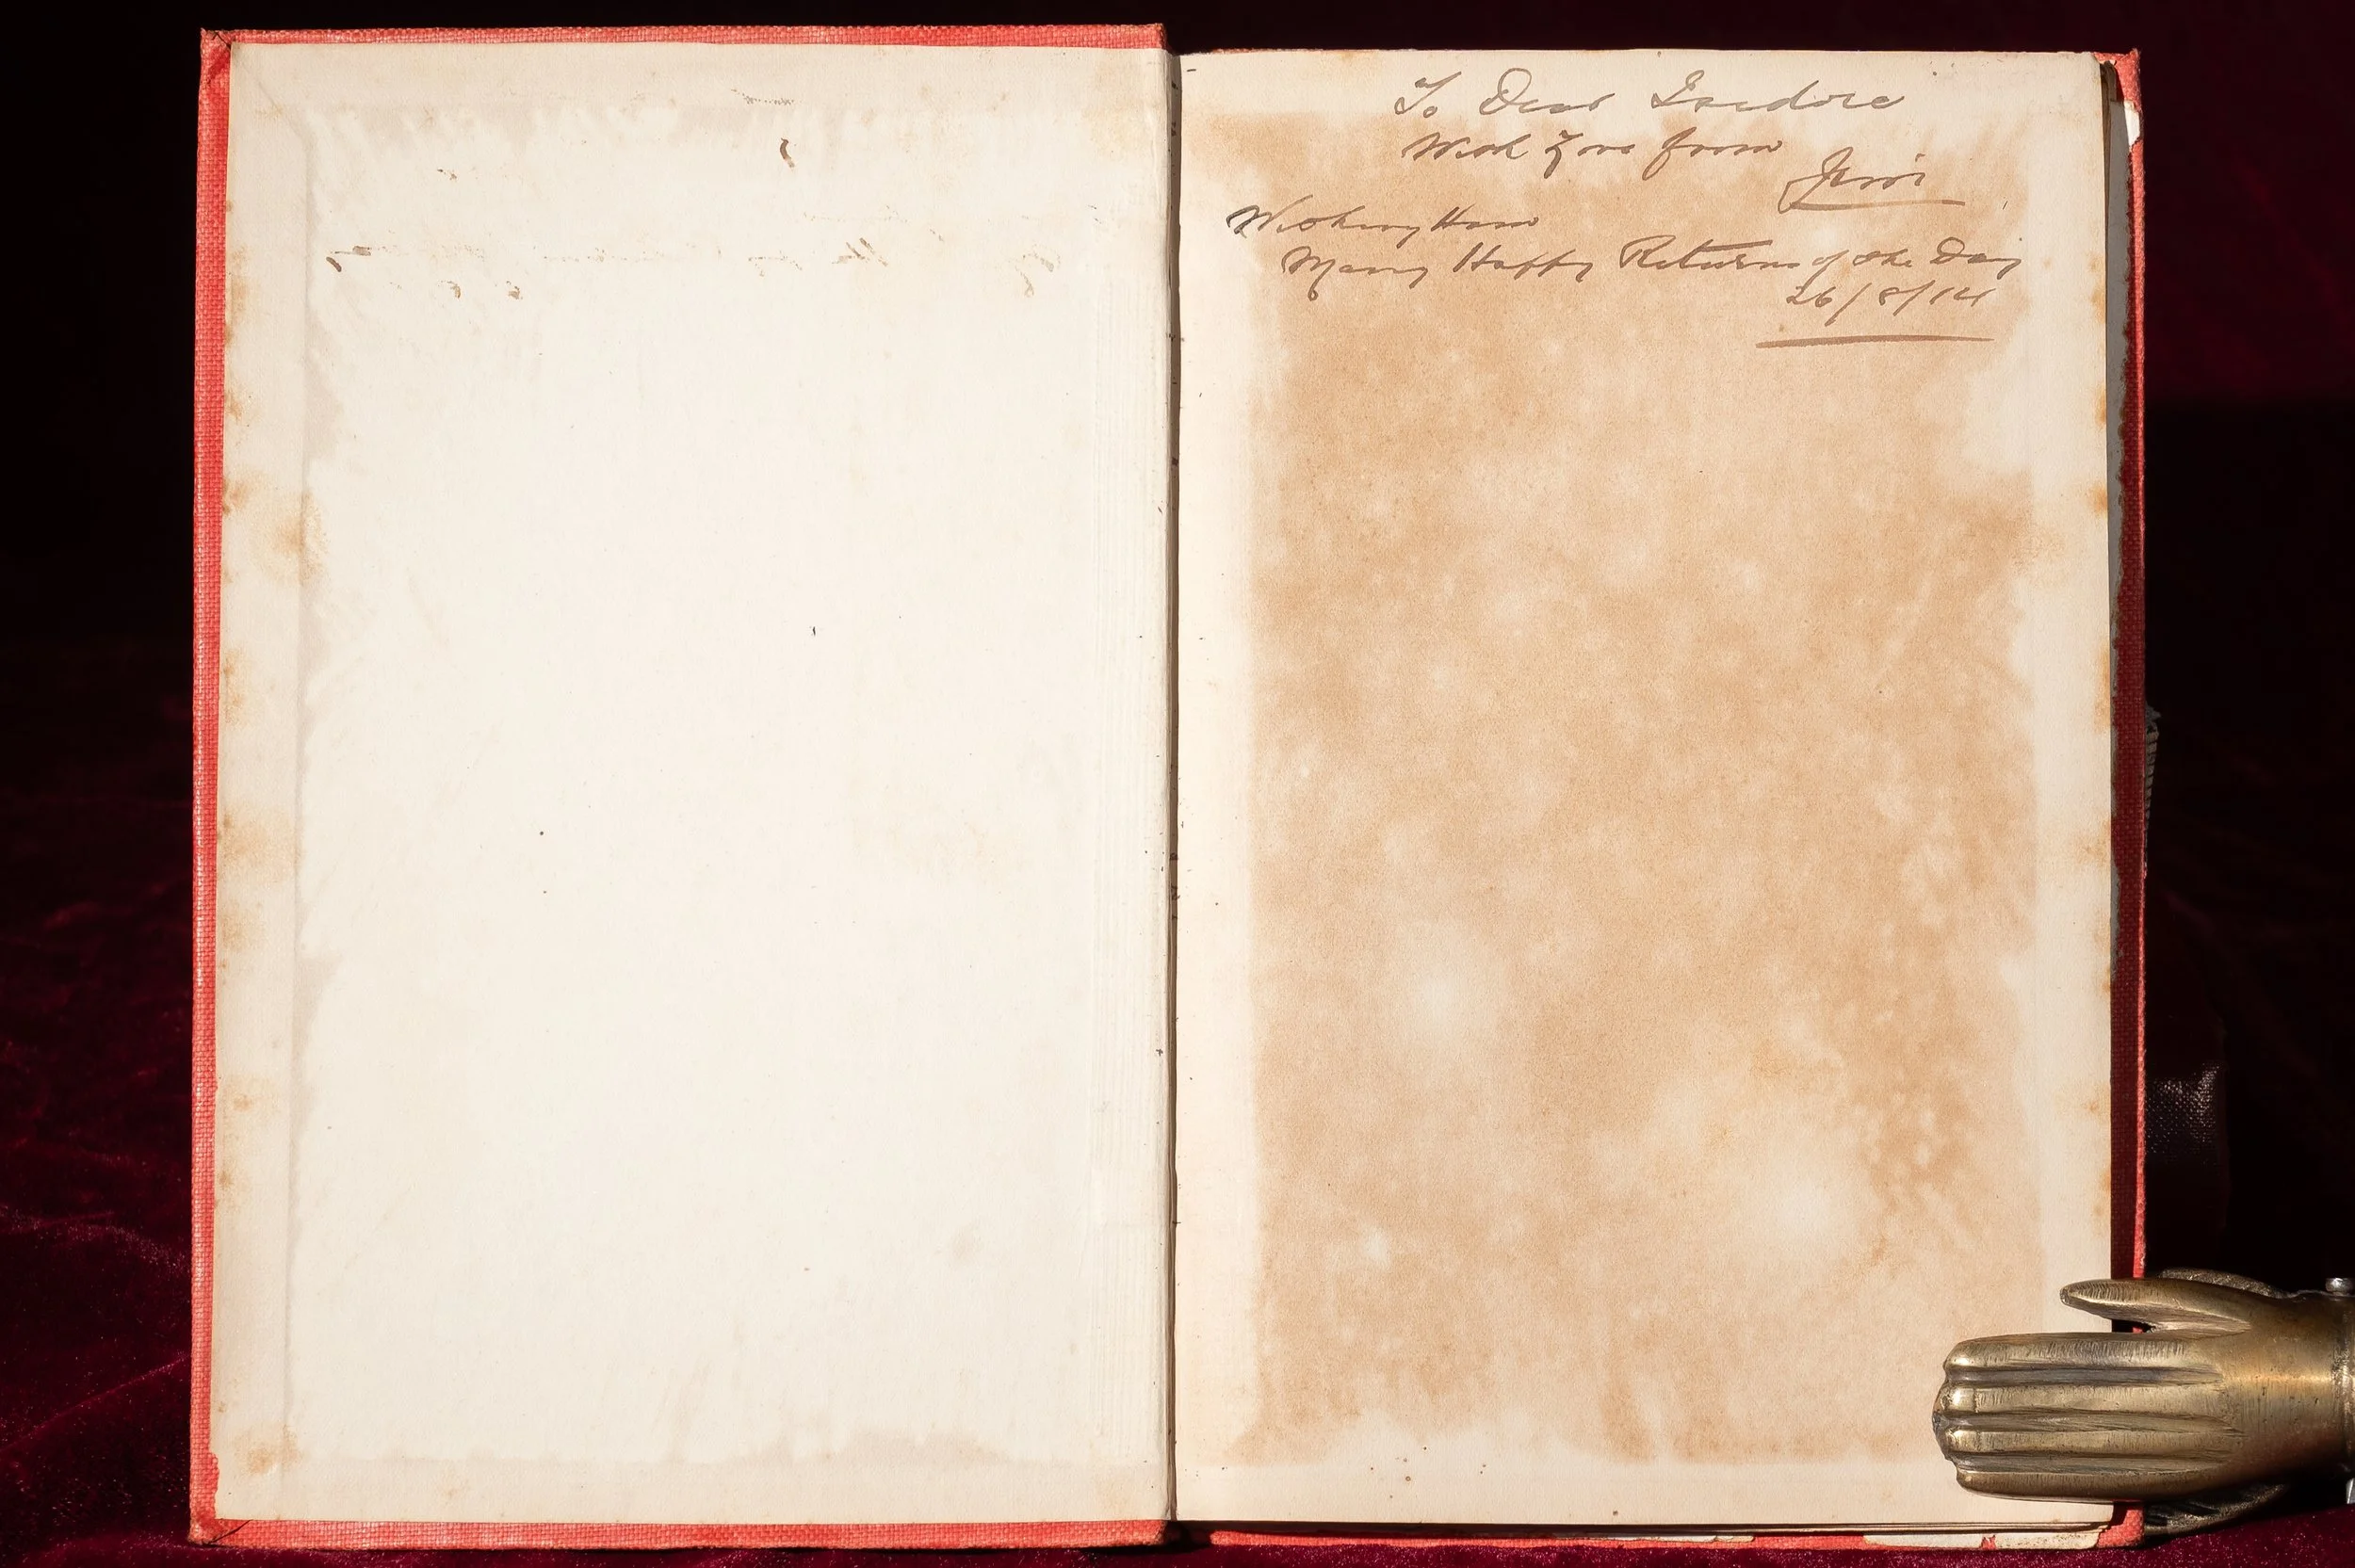 To Dear Isadore
With Love from
Jim
Wishing Him
Many Happy Returns of the Day
26/8/14